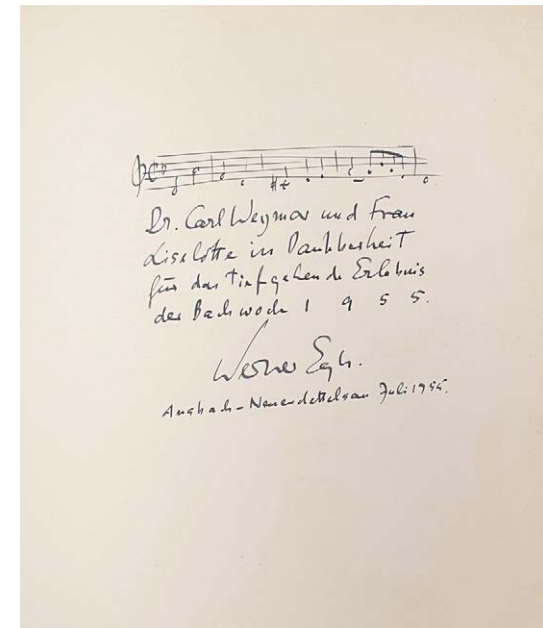 Dr. Carl Weymar und Frau
Liselotte in Dankbarkeit
für das tiefgehende Erlebnis
der Bachwoche 1 9 5 5.
Werner Egk.
Ansbach-Neuendettelsau Juli 1955.